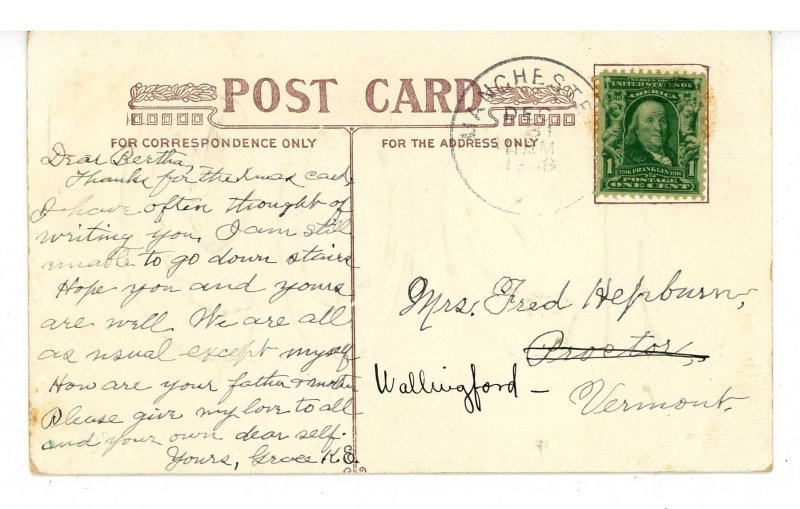 POST CARD
FOR CORRESPONDENCE ONLY
FOR THE ADDRESS ONLY
MANCHESTE
DEC
31
AM
SERIES 1902
UNITED STATES OF
AMERICA
1 1706 FRANKLIN 1790 1
POSTAGE
ONE CENT
Dear Bertha,
Thanks for the Xmas card,
I have often thought of
writing you, I am still
unable to go down stairs
Hope you and yours
are well. We are all
as usual except myself
How are your father & mother
Please give my love to all
and your own dear self.
Yours, Grace K.E.
Mrs. Fred Hepburn,
Proctor,
Wallingford –
Vermont.